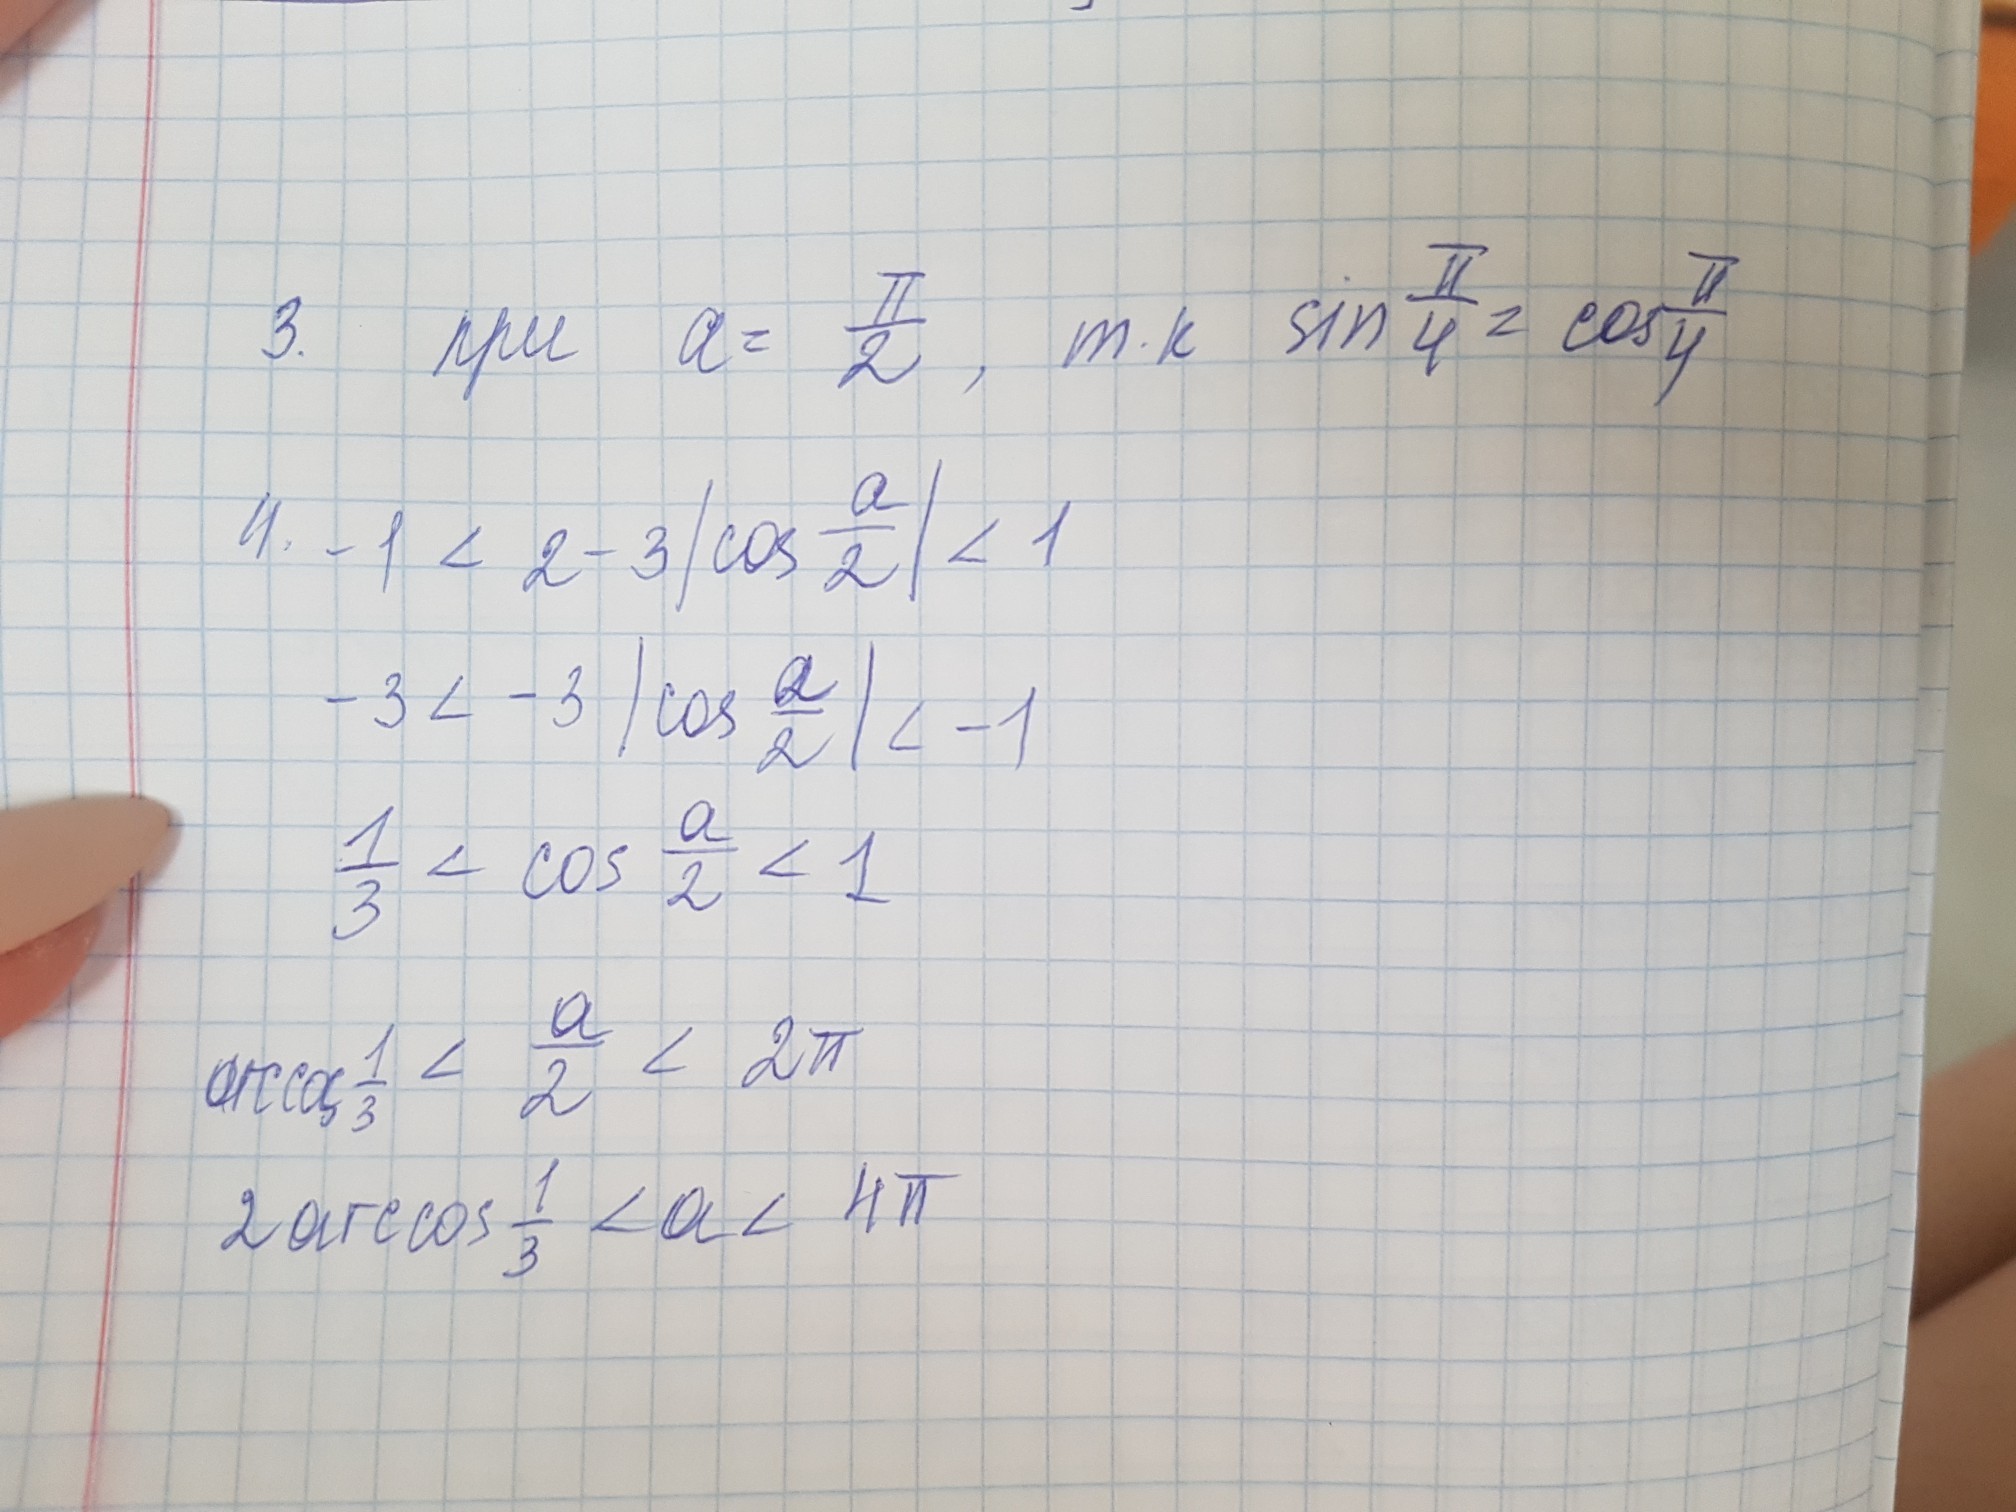 3. при a = π/2, т.к sin π/4 = cos π/4
4. -1 < 2 - 3|cos a/2| < 1
-3 < -3|cos a/2| < -1
1/3 < cos a/2 < 1
arccos 1/3 < a/2 < 2π
2 arccos 1/3 < a < 4π